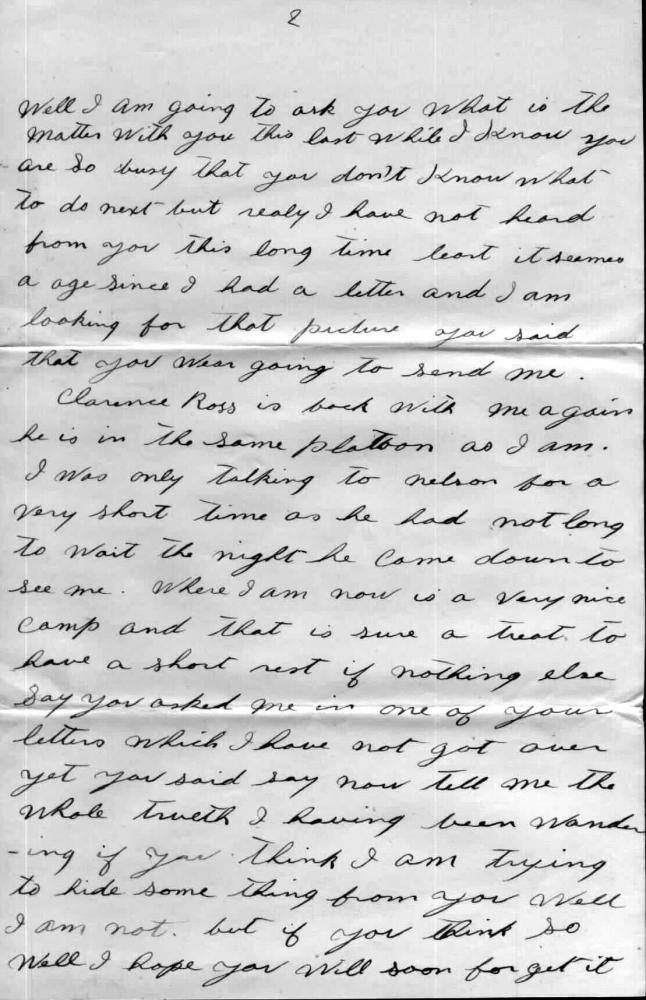 2
Well I am going to ask you what is the
matter with you this last while I know you
are so busy that you don't know what
to do next but realy I have not heard
from you this long time least it seemes
a age since I had a letter and I am
looking for that picture you said
that you wear going to send me.
Clarence Ross is back with me again
he is in the same platoon as I am.
I was only talking to nelson for a
very short time as he had not long
to wait the night he came down to
see me. Where I am now is a very nice
camp and that is sure a treat to
have a short rest if nothing else
Say you asked me in one of your
letters which I have not got over
yet you said say now tell me the
whole trueth I having been wander
-ing if you think I am trying
to hide some thing from you Well
I am not. but if you think so
Well I hope you will soon forget it